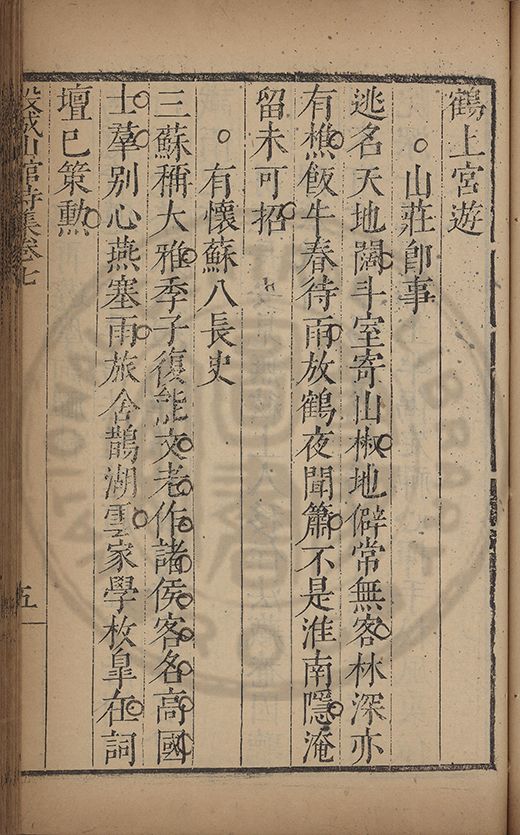 鶴上宮遊
山莊卽事
逃名天地闊斗室寄山椒地僻常無客林深亦
有樵飯牛春待雨放鶴夜聞簫不是淮南隱淹
留未可招
有懷蘇八長史
三蘇稱大雅季子復能文老作諸侯客名高國
士羣别心燕塞雨旅舍鵲湖雲家學枚皐在詞
壇已策勳
榖城山館詩集卷七
五